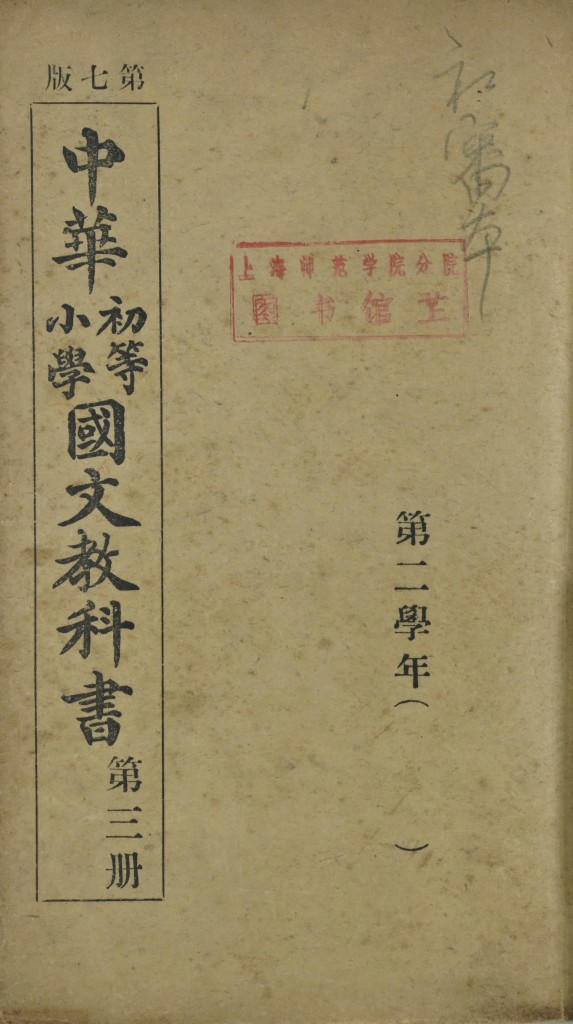 第七版
中華初等小學國文教科書
第三册
第二學年（ ）
上海师范学院分院
图书馆
初審本